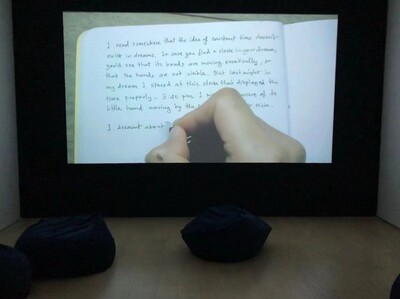 I read somewhere that the idea of constant time doesn't
exist in dreams. In case you find a clock in your dream,
you'd see that its hands are moving erratically, or
that the hands are not visible. But last night in
my dream I stared at this clock that displayed the
time properly. 5:20 pm. I
little hand moving by the
I dreamt about